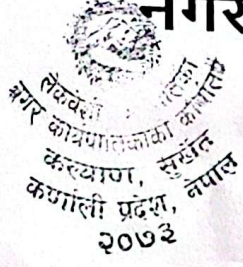 नगर
लेकवेशी
नगर कार्यपालिकाको कार्यालय
कल्याण, सुर्खेत
कर्णाली प्रदेश, नेपाल
२०७३